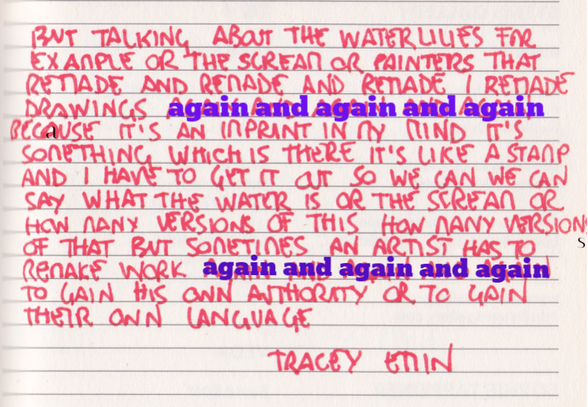 BUT TALKING ABOUT THE WATERLILIES FOR
EXAMPLE OR THE SCREAM OR PAINTERS THAT
REMADE AND REMADE AND REMADE I REMADE
DRAWINGS again and again and again
BECaUSE IT'S AN IMPRINT IN MY MIND IT'S
SOMETHING WHICH IS THERE IT'S LIKE A STAMP
AND I HAVE TO GET IT OUT SO WE CAN WE CAN
SAY WHAT THE WATER IS OR THE SCREAM OR
HOW MANY VERSIONS OF THIS HOW MANY VERSIONs
OF THAT BUT SOMETIMES AN ARTIST HAS TO
REMAKE WORK again and again and again
TO GAIN HIS OWN AUTHORITY OR TO GAIN
THEIR OWN LANGUAGE
TRACEY EMIN